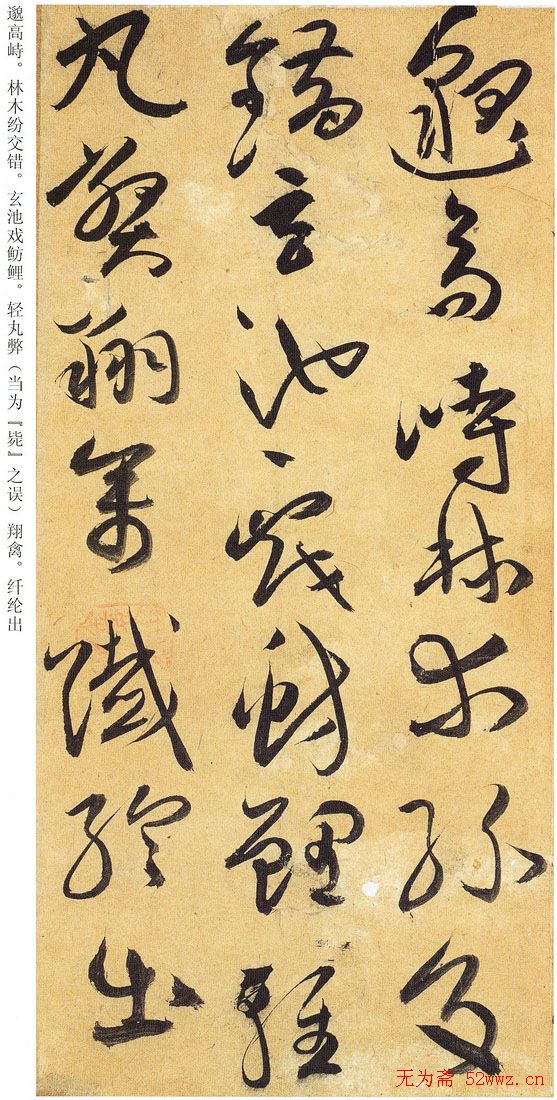 邈高峙林木紛交
錯玄池戲魴鯉輕
丸弊翔禽纖綸出
邈高峙。林木纷交错。玄池戏鲂鲤。轻丸弊（当为『毙』之误）翔禽。纤纶出
无为斋 52wwz.cn